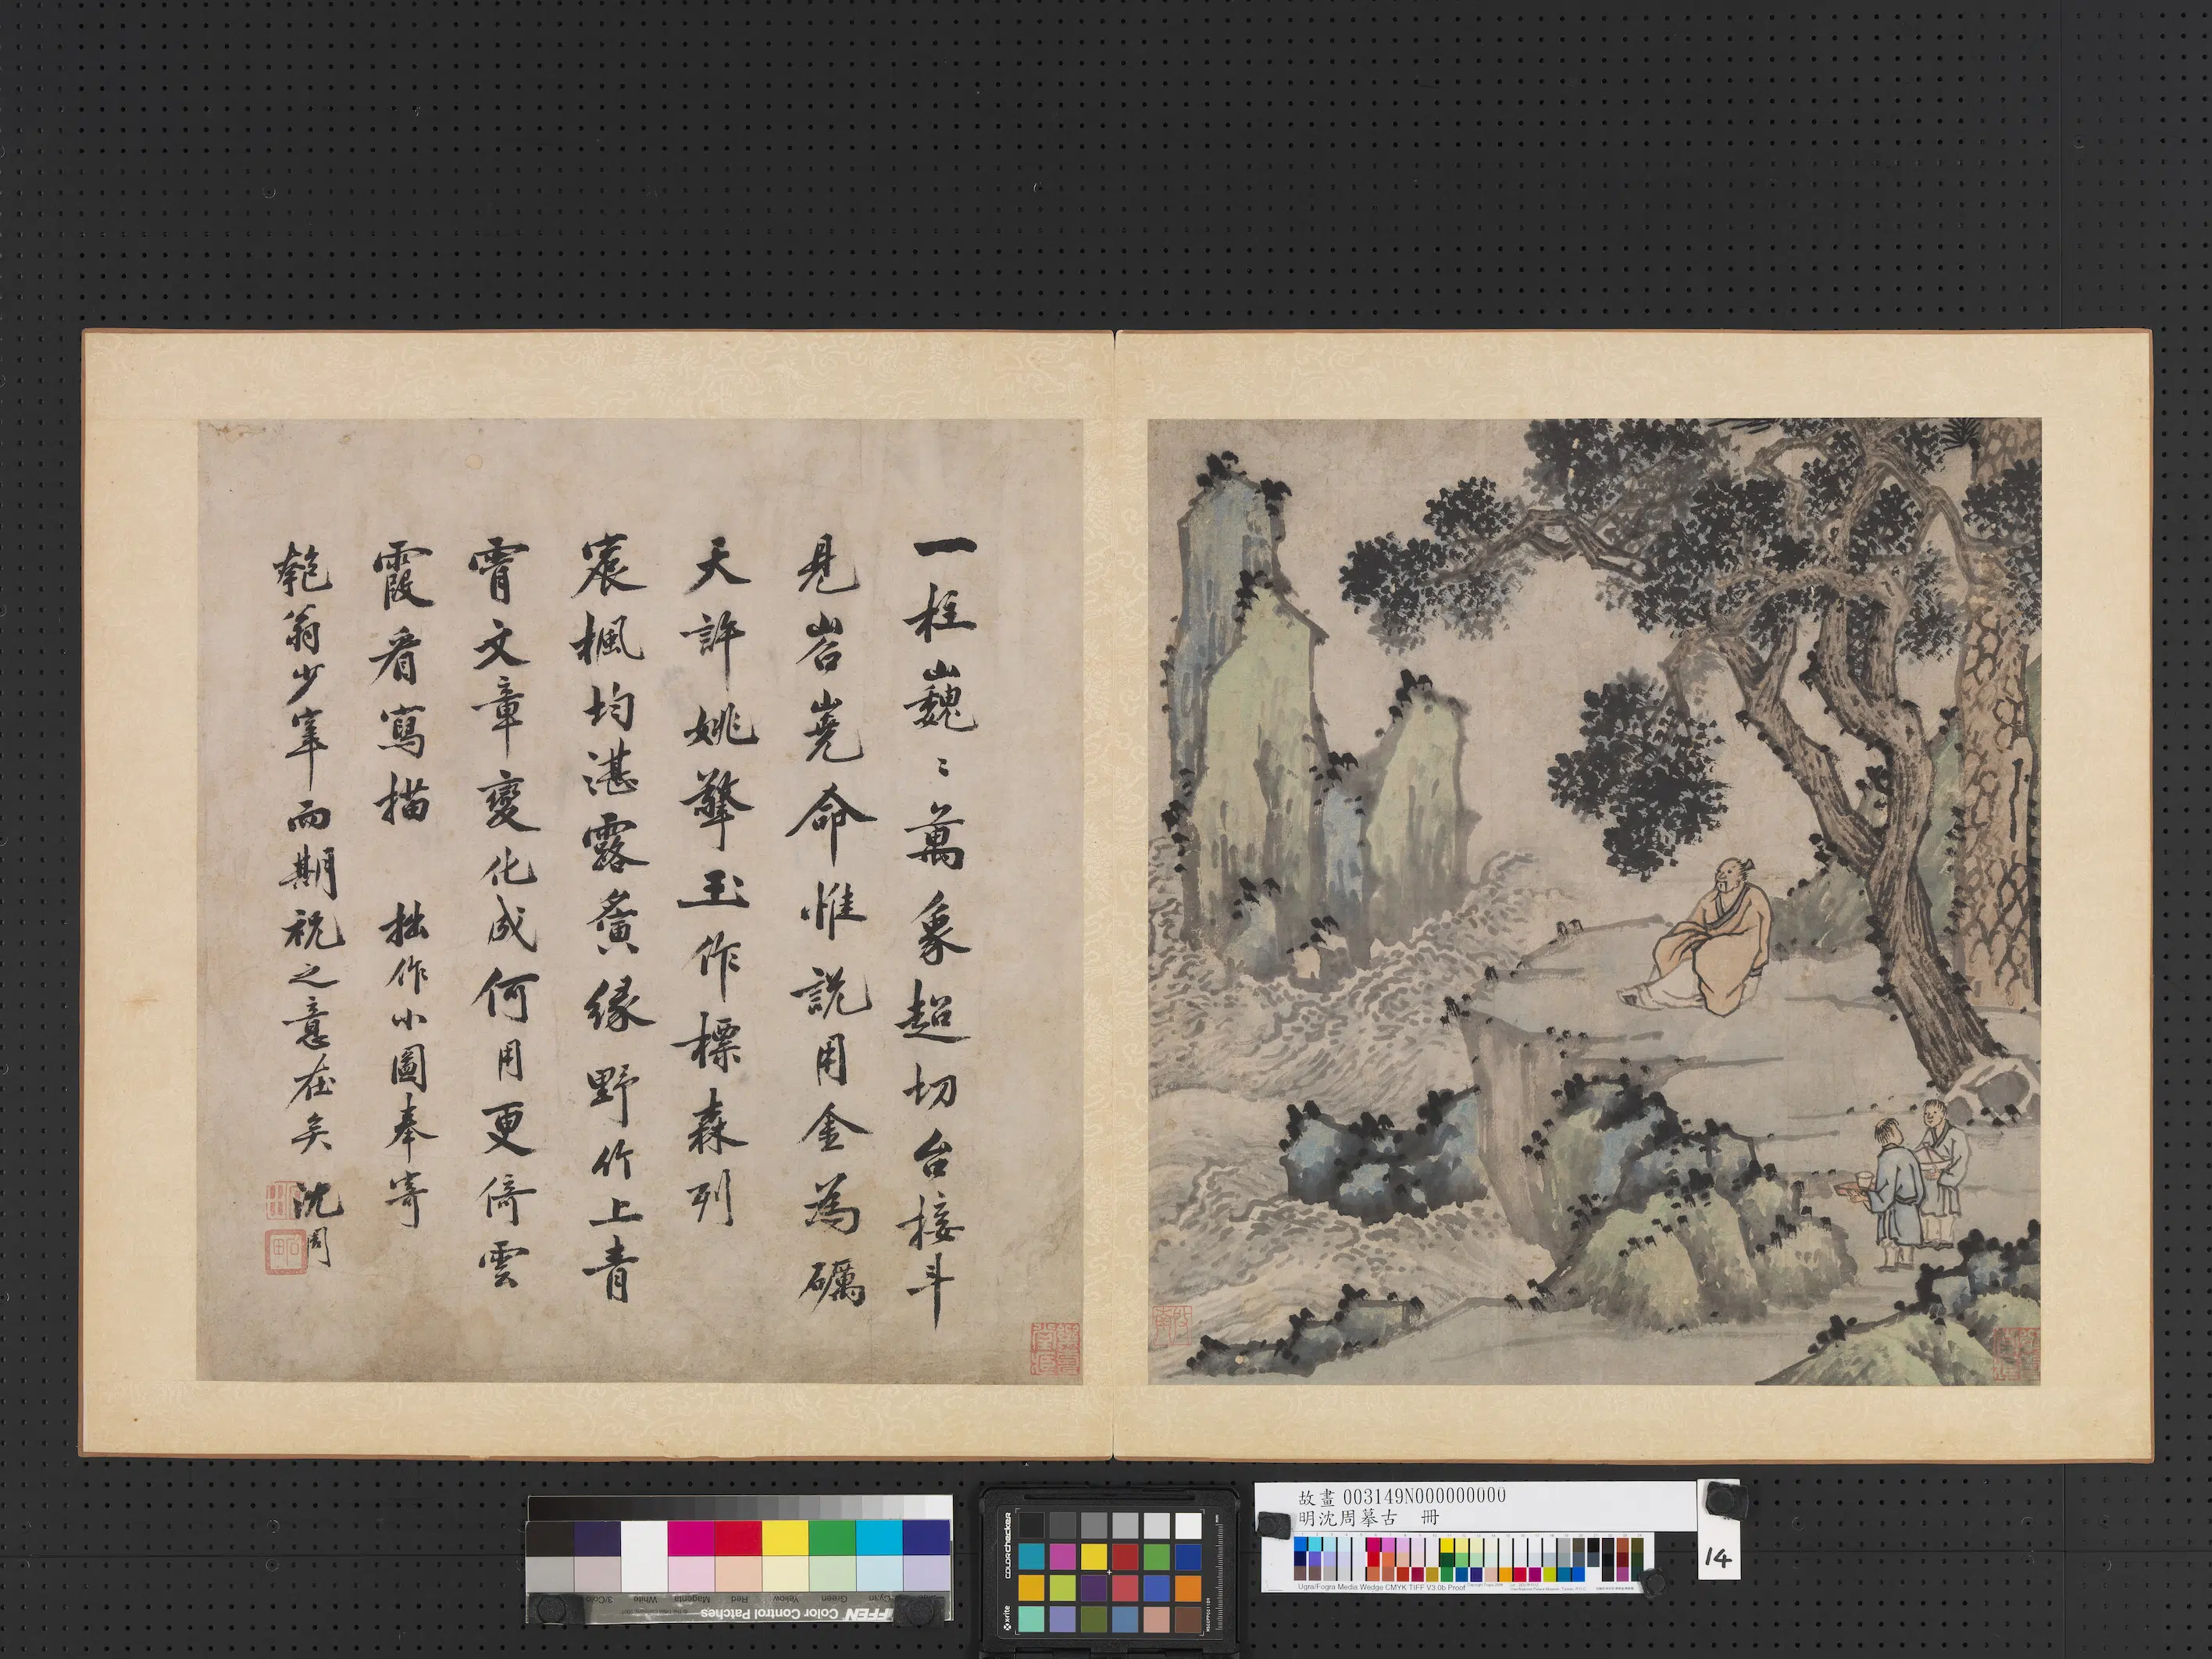 一柱巍〻萬象超切台接斗
見岧嶤命惟説用金為礪
天許姚擎玉作標森列
寰楓均湛露賡緣野竹上青
霄文章變化成何用更倚雲
霞看寫描 拙作小圖奉寄
匏翁少宰而期祝之意在矣 沈周
故畫 003149N000000000
明沈周摹古 冊
14
Ugra/Fogra Media Wedge CMYK TIFF V3.0b Proof
colorchecker
x-rite
TIFFEN Color Control Patches
Cyan
Green
Yellow
Red
Magenta
White
3/Color